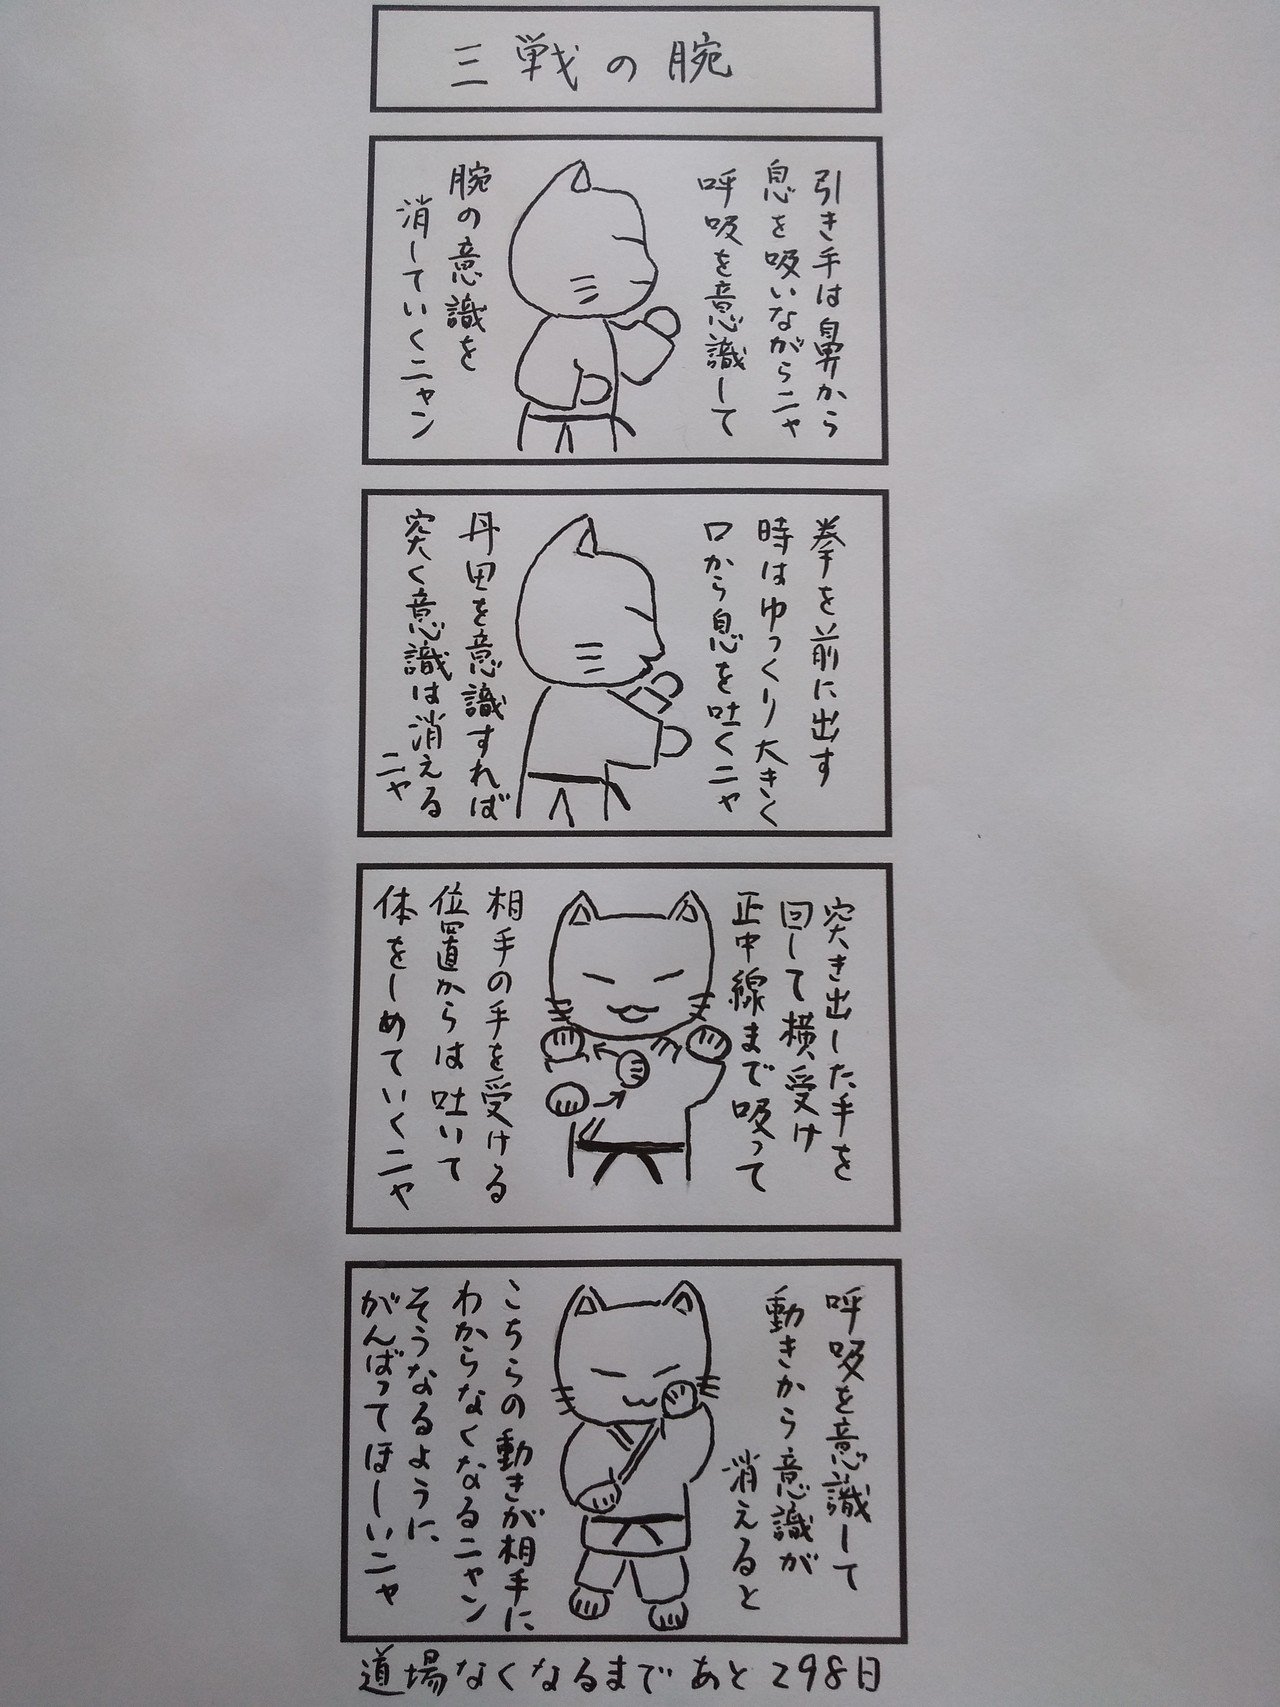 三戦の腕
引き手は鼻から
息を吸いながらニャ
呼吸を意識して
腕の意識を
消していくニャン
拳を前に出す
時はゆっくり大きく
口から息を吐くニャ
丹田を意識すれば
突く意識は消える
ニャ
突き出した手を
回して横受け
正中線まで吸って
相手の手を受ける
位置からは吐いて
体をしめていくニャ
呼吸を意識して
動きから意識が
消えると
こちらの動きが相手に
わからなくなるニャン
そうなるように、
がんばってほしいニャ
道場なくなるまであと298日